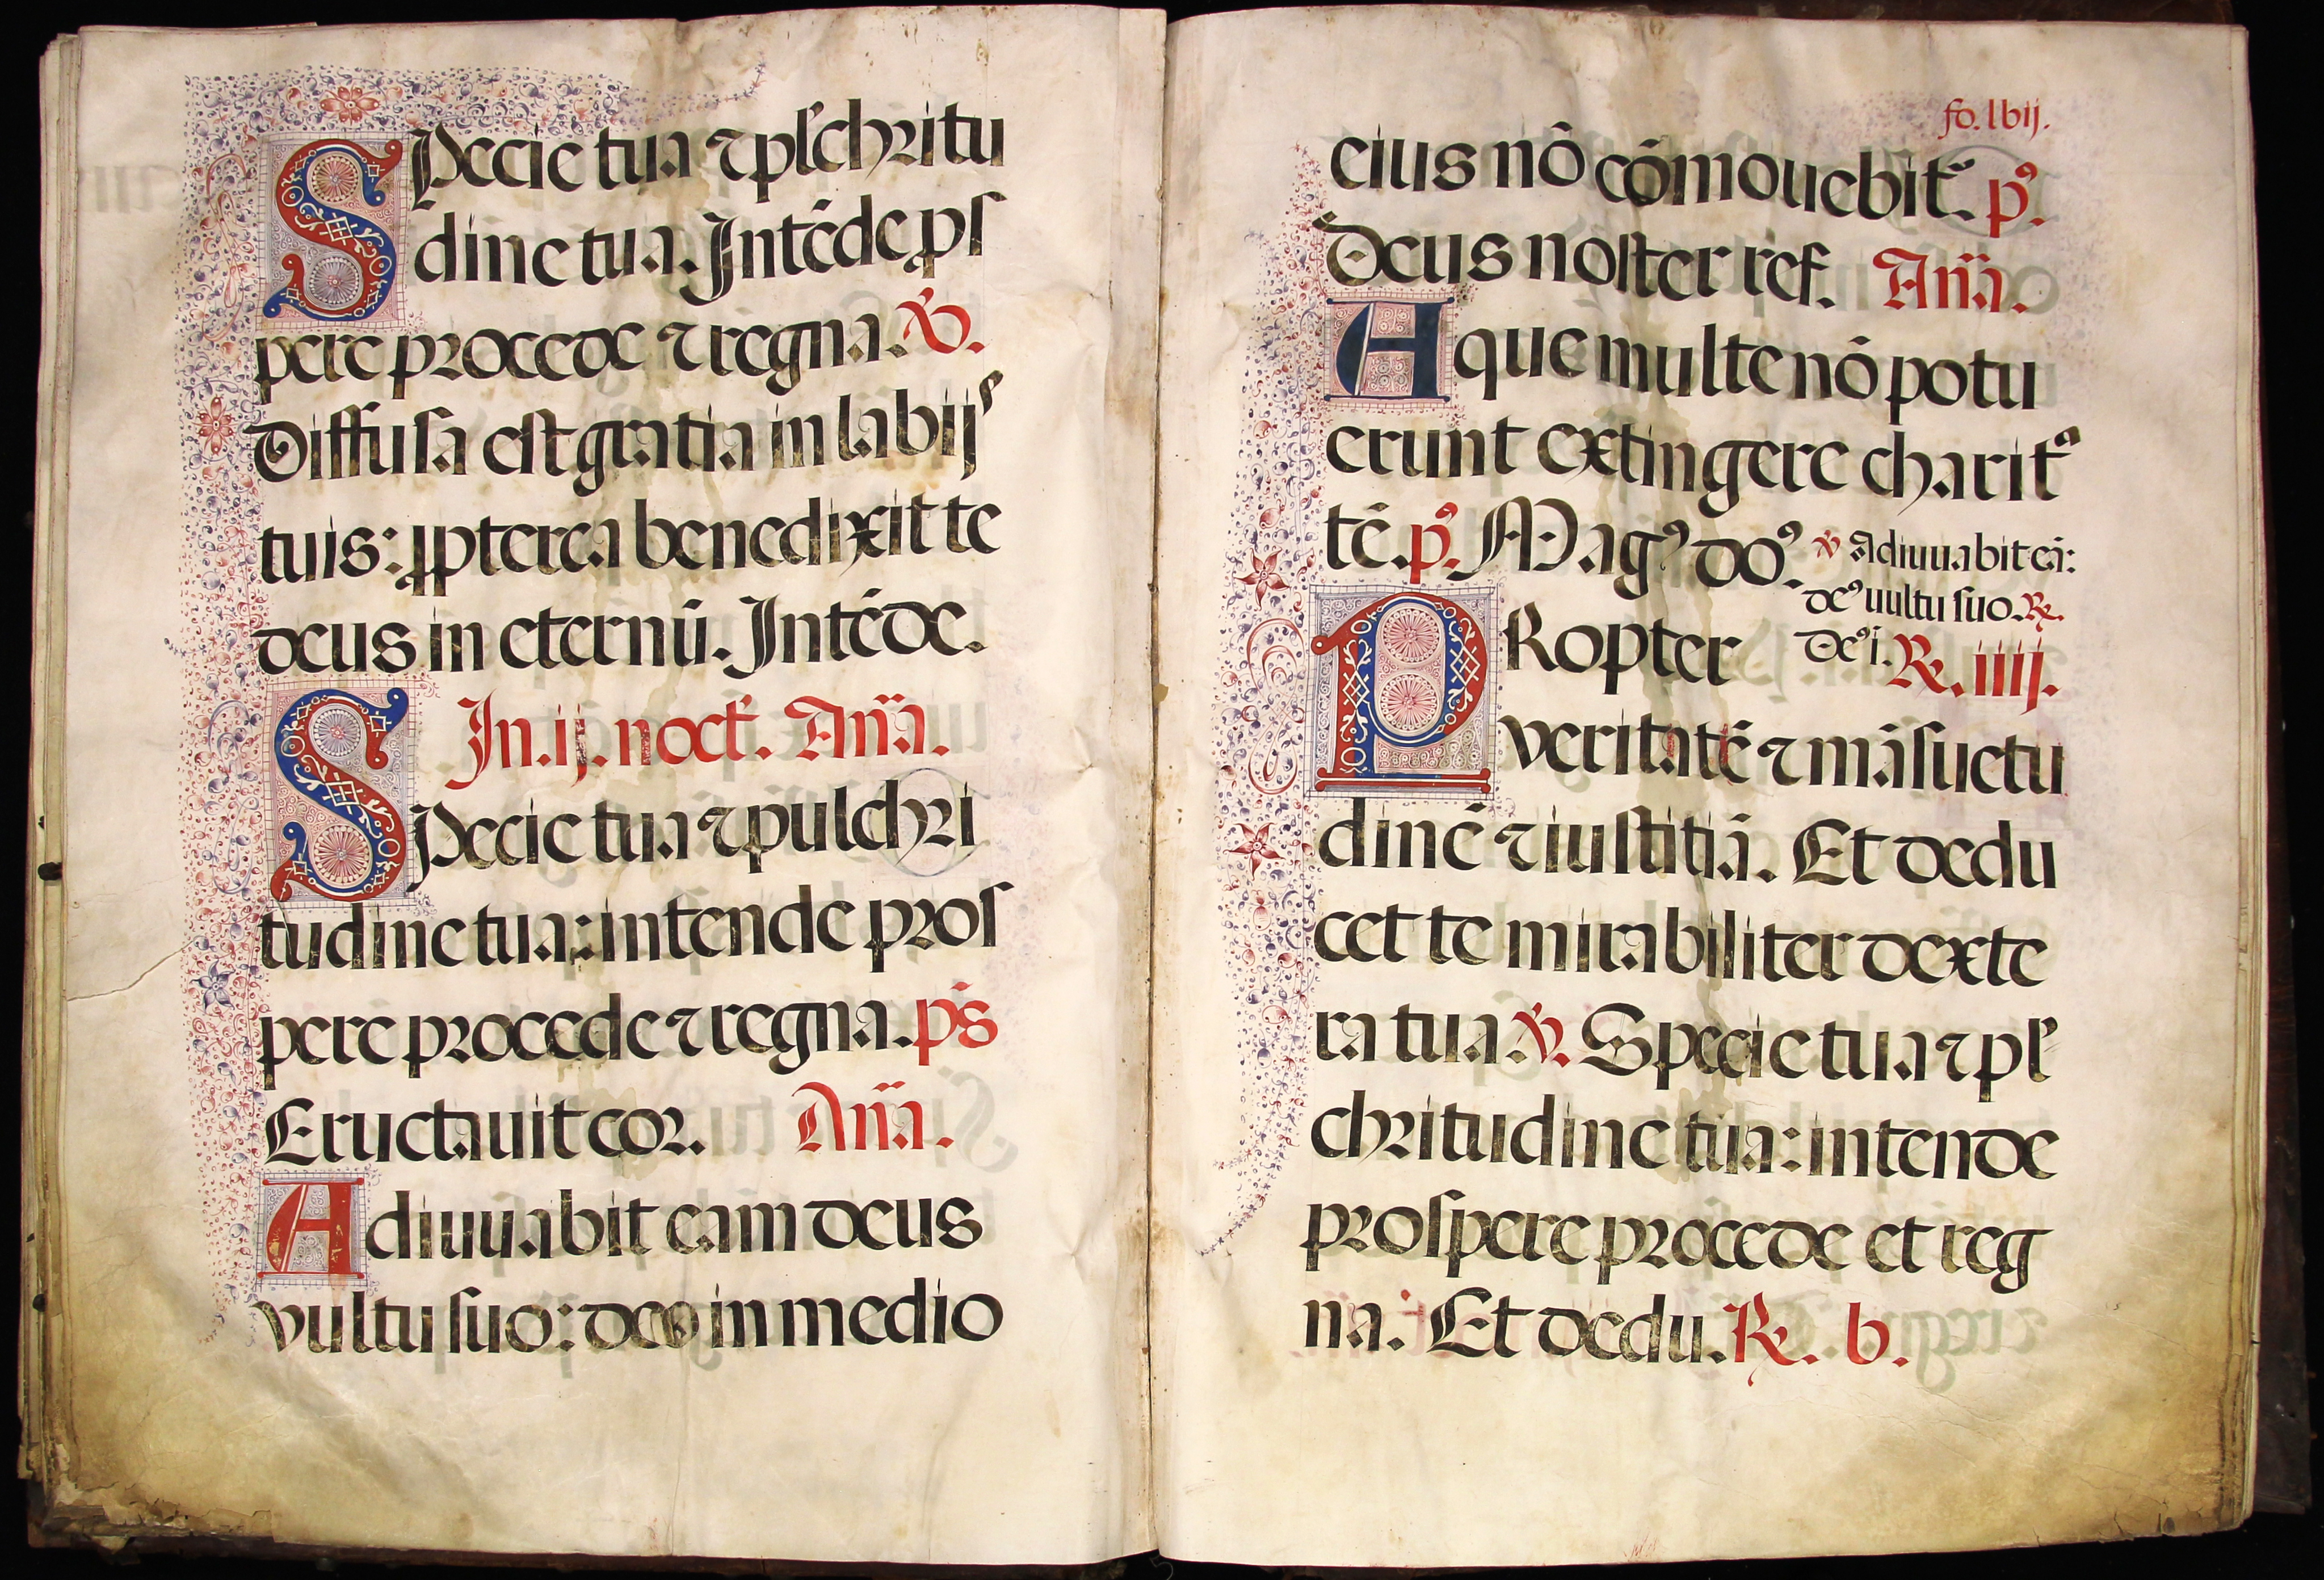 SPecie tua ⁊ pl̃chritu
dine tua. Intẽde ꝓſ
pere procede ⁊ regna. ℣.
Diffuſa eſt gratia in labijs
tuis: ꝓpterea benedixit te
deus in eternũ. Intẽde.
In.ij. noct̃. Añã.
SPecie tua ⁊ pulchri
tudine tua: intende proſ
pere procede ⁊ regna. p̃s
Eructauit cor. Añã.
Adiuuabit eam deus
vultu ſuo: deꝰ in medio
fo. lvij.
eius nõ cõmouebit̃. pꝰ.
Deus noſter ref. Añã.
Aque multe nõ potu
erunt extingere charit
tẽ. pꝰ. Magꝰ doꝰ. ℣ Adiuuabit eã:
deꝰ uultu ſuo. ℞.
PRopter deꝰ i. ℞. iiij.
veritatẽ ⁊ mãſuetu
dinẽ ⁊ iuſtitiã. Et dedu
cet te mirabiliter dexte
ra tua ℣. Specie tua ⁊ pl̃
chritudine tua: intende
proſpere procede et reg
na. Et dedu. ℞. v.